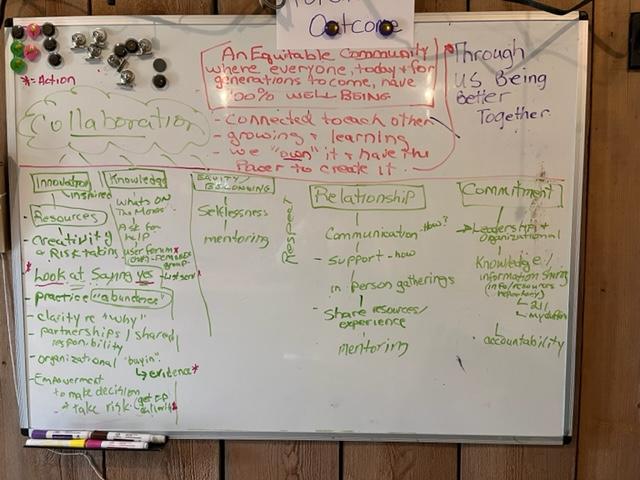 Outcome
*= Action
Collaboration
An Equitable Community
where everyone, today + for
generations to come, have
100% WELL BEING
- Connected to each other
- growing + learning
- we "own" it + have the
Power to create it
*Through
us Being
Better
Together
Innovation
inspired
Resources
- Creativity
or Risk taking
* Look at Saying yes
- practice "abundance"
- clarity re "why"
- partnerships / shared
responsibility
- organizational "buyin"
↳ evidence*
- Empowerment
to make decision
+ take risk
Knowledge
whats on
The Move
Ask for
help
user forum*
group
EQUITY
BELONGING
Selflessness
mentoring
RESPECT
Relationship
Communication -How?
- Support - how
in person gatherings
- Share resources/
experience
mentoring
Commitment
Leadership +
organizational
Knowledge/
information sharing
(info/resources
repository)
↳ 211
accountability